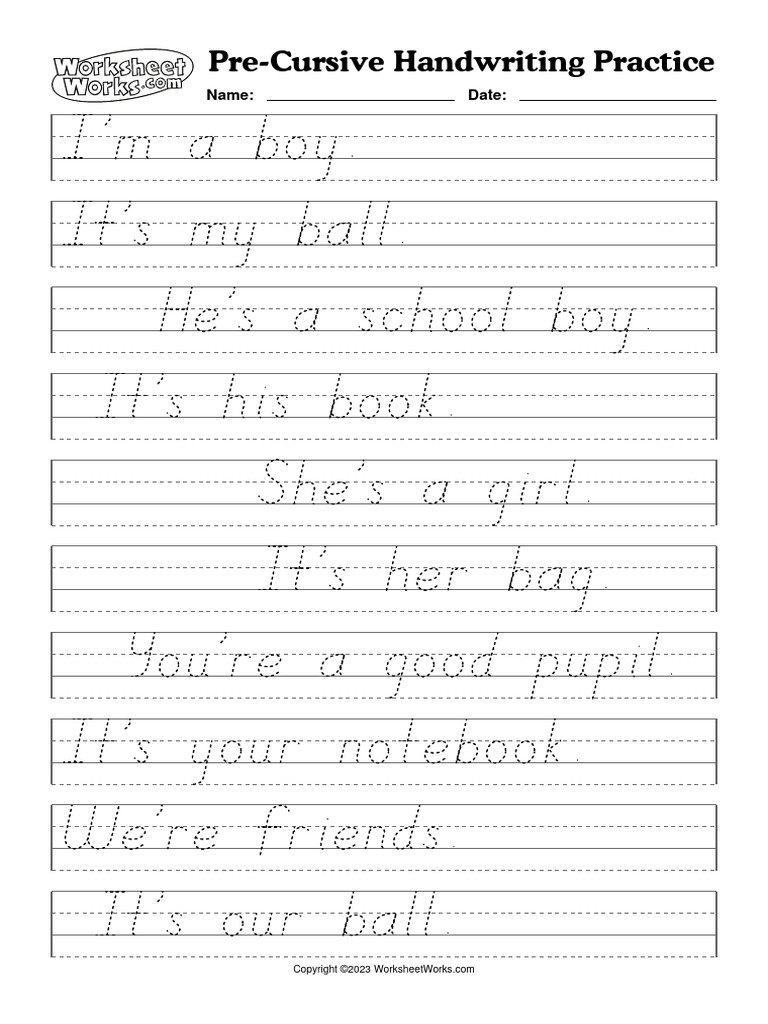 Worksheet Works.com
Pre-Cursive Handwriting Practice
Name: Date:
I'm a boy.
It's my ball.
He's a school boy.
It's his book.
She's a girl.
It's her bag.
You're a good pupil.
It's your notebook.
We're friends.
It's our ball.
Copyright ©2023 WorksheetWorks.com